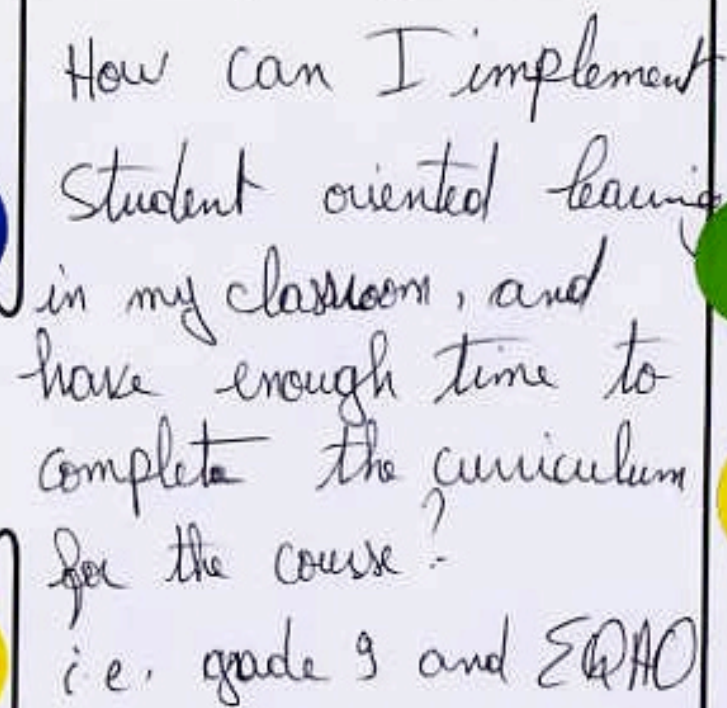 How can I implement
Student oriented learning
in my classroom, and
have enough time to
complete the curriculum
for the course?
i.e. grade 9 and EQAO